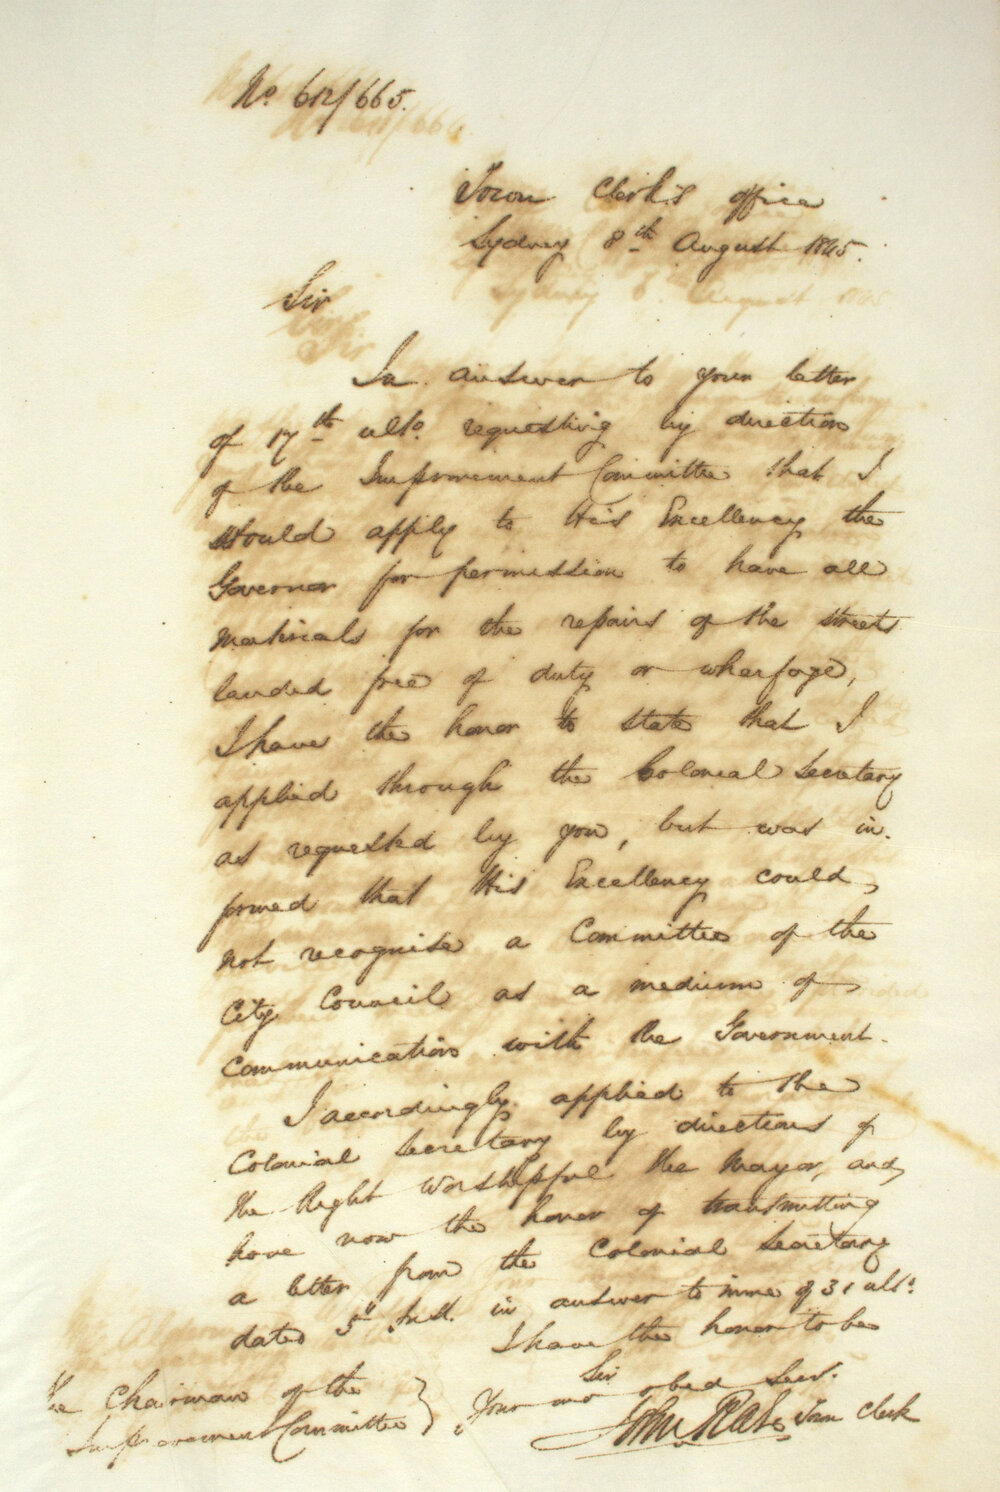 No. 612/665.
Town Clerk's office
Sydney 8th August 1845.
Sir
In answer to your letter
of 17th ulto. requesting by direction
of the Improvement Committee that I
would apply to His Excellency the
Governor for permission to have all
materials for the repairs of the streets
landed free of duty or wharfage,
I have the honor to state that I
applied through the Colonial Secretary
as requested by you, but was in-
formed that His Excellency could
not recognise a Committee of the
City Council as a medium of
communication with the Government.
I accordingly applied to the
Colonial Secretary by directions of
the Right Worshipful the Mayor, and
have now the honor of transmitting
a letter from the Colonial Secretary
dated 5th Inst. in answer to mine of 31 ulto.
I have the honor to be
Sir
Your mo obed Serv.
John Rae Town Clerk
The Chairman of the
Improvement Committee